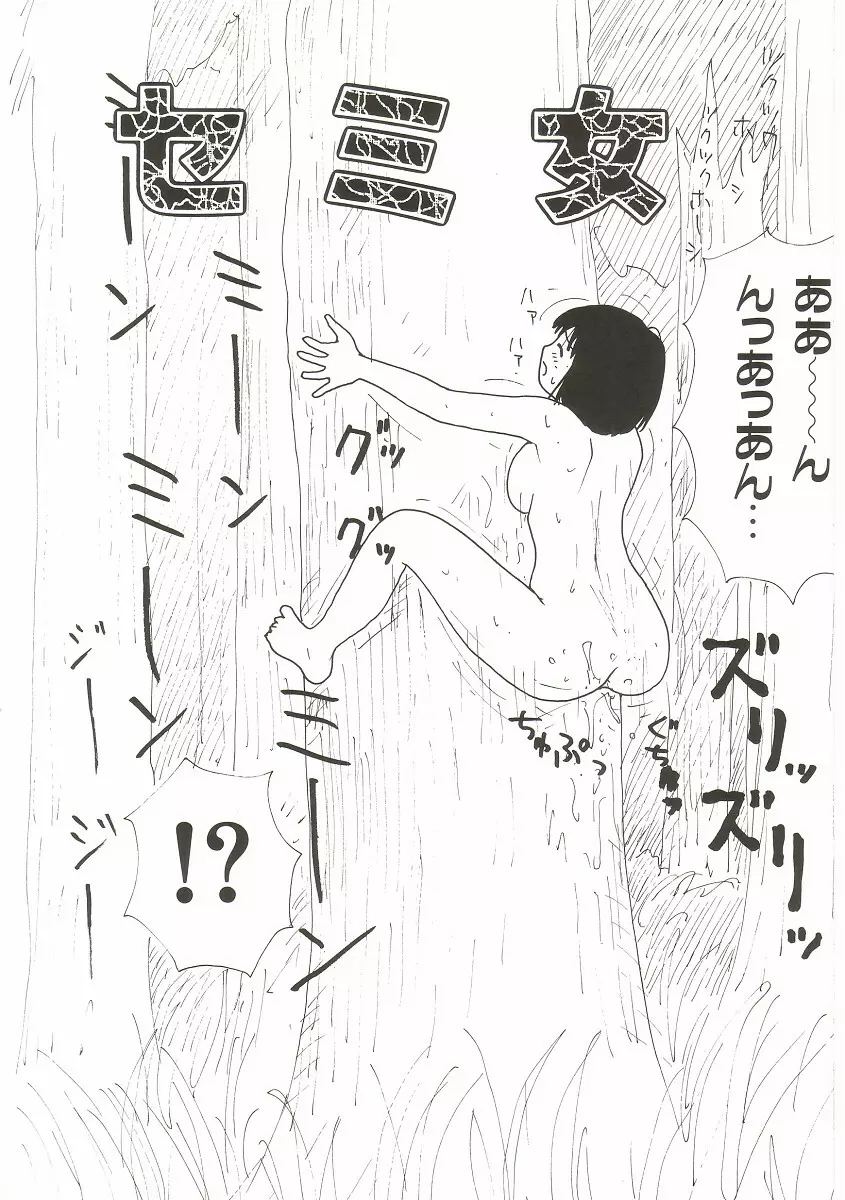 セミ女
ツクツクホーシ
ツクツクホーシ
ああ〜〜〜ん
んっあっあん…
ハァ
ハァ
グッ
グッ
ミーンミーンミーン
ミーンミーン
ジージー
ちゅぷっ
ぐちゅっ
ズリッズリッ
!?